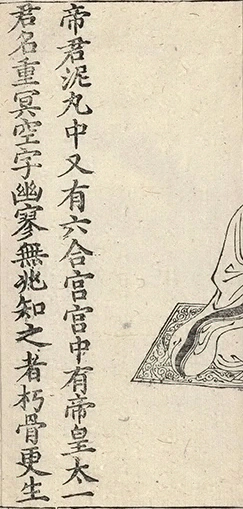 帝君泥丸中又有六合宮宮中有帝皇太一
君名重冥空字幽寥無兆知之者朽骨更生